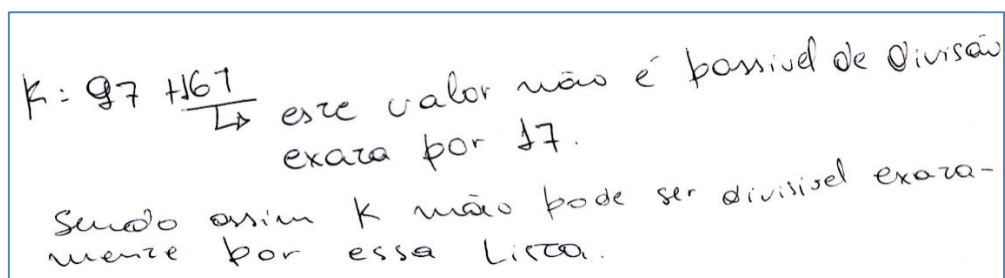 K: 97 + 167
↳ este valor não é passivel de divisão
exata por 17.
Sendo assim K não pode ser divisivel exata-
mente por essa Lista.